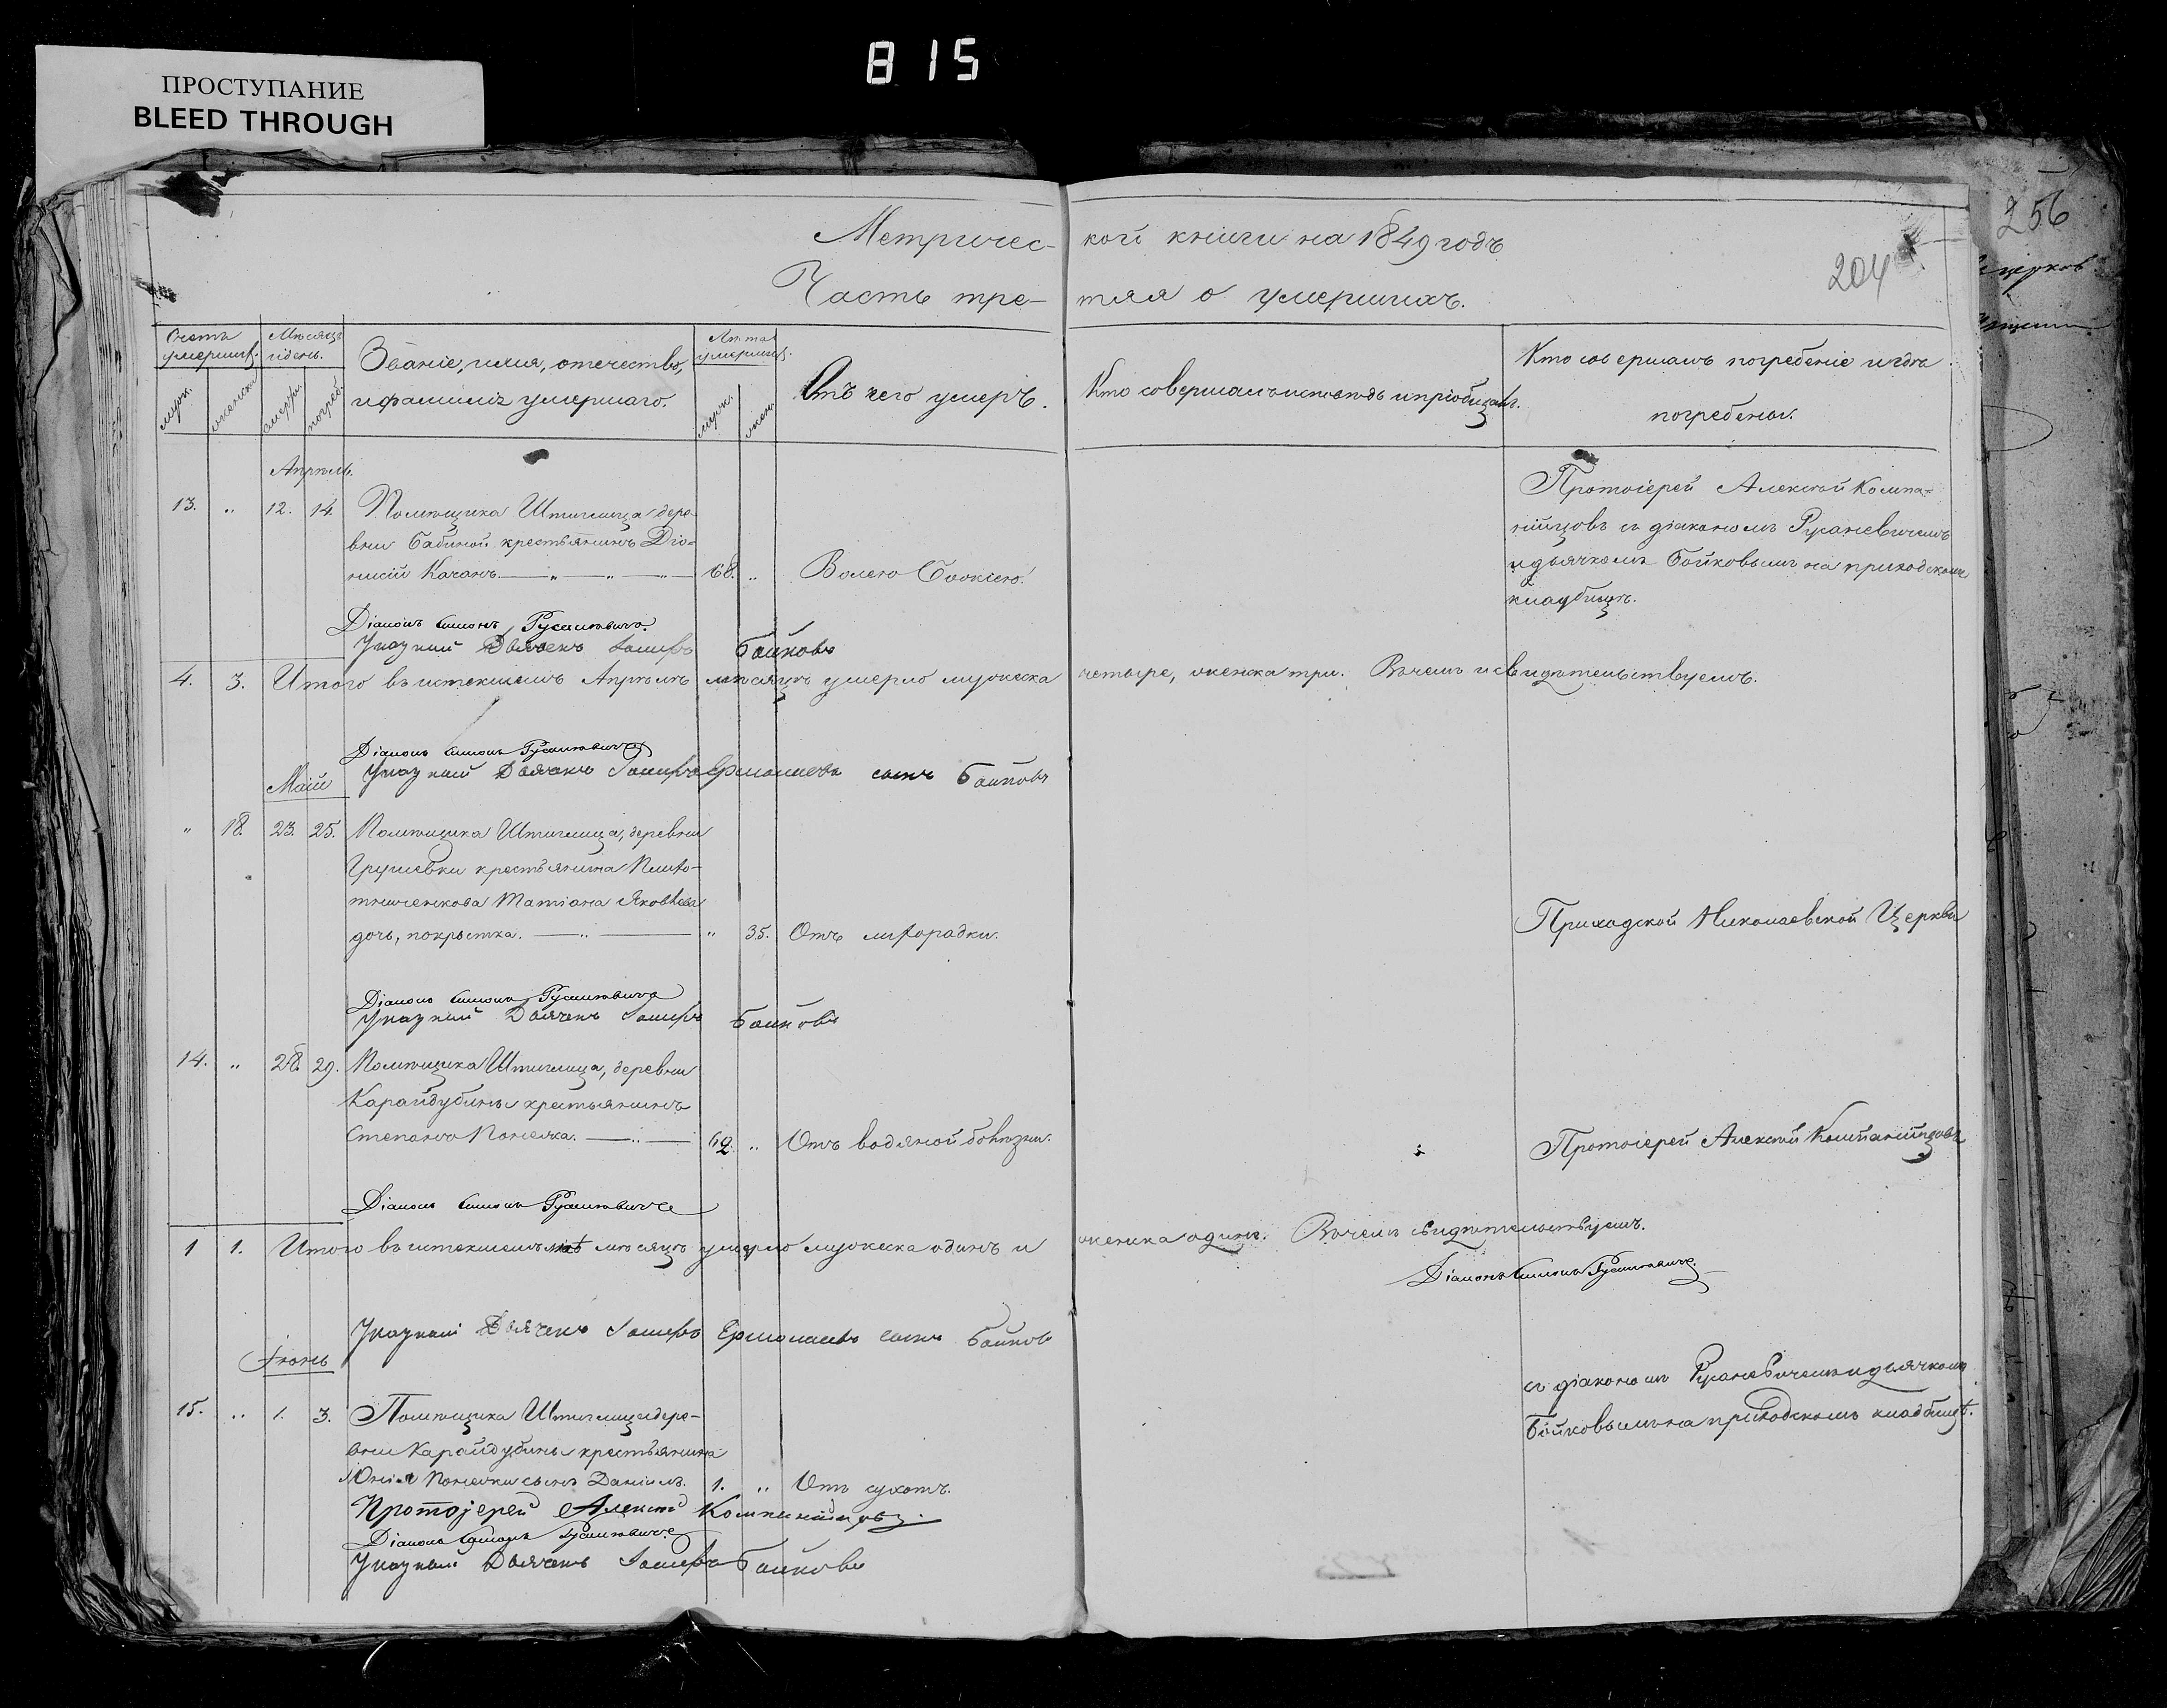 815
ПРОСТУПАНИЕ
BLEED THROUGH
256
Метричес- кой книги на 1849 годъ
204
Часть тре- тяя о умершихъ.
Счетъ умершихъ.
Мѣсяцъ и день.
Званіе, имя, отечество, и фамилія умершаго.
Лѣта умершихъ.
Отъ чего умеръ.
Кто совершалъ исповѣдь и пріобщалъ.
Кто совершалъ погребеніе и гдѣ погребены.
муж. женски смерти погреб. муж. женс.
Апрѣль.
13. „ 12. 14. Помѣщика Штиглица, дере-
вни Бабиной крестьянинъ Діо-
нисій Качанъ. 68. „ Волею Божіею.
Протоіерей Алексѣй Компа-
нійцовъ съ діакономъ Русаневичемъ
и дьячкомъ Бойковымъ на приходскомъ
кладбищѣ.
Діаконъ Симонъ Русаневичъ.
Указный Дьячекъ Бойковъ
4. 3. Итого въ истекшемъ Апрѣлѣ мѣсяцѣ умерло мужеска четыре, женска три. Въ чемъ и свидѣтельствуемъ.
Діаконъ Симонъ Русаневичъ
Указный Дьячекъ Ермолаевъ сынъ Бойковъ
Маій
„ 18. 23. 25. Помѣщика Штиглица, деревни
Грушевки крестьянина
Татіана Яковлева
дочь, покрытка. „ 35. Отъ лихорадки.
Приходской Николаевской Церкви
Діаконъ Симонъ Русаневичъ
Указный Дьячекъ Бойковъ
14. „ 28. 29. Помѣщика Штиглица, деревни
Карайдубины крестьянинъ
Степанъ Понечка. 62. „ Отъ водяной болѣзни.
Протоіерей Алексѣй Компанійцовъ
Діаконъ Симонъ Русаневичъ
1 1. Итого въ истекшемъ маѣ мѣсяцѣ умерло мужеска одинъ и женска одинъ. Въ чемъ свидѣтельствуемъ.
Діаконъ Симонъ Русаневичъ
Указный Дьячекъ Ермолаевъ сынъ Бойковъ
Іюнь
съ діакономъ Русаневичемъ и дьячкомъ
Бойковымъ на приходскомъ кладбищѣ.
15. „ 1. 3. Помѣщика Штиглица дере-
вни Карайдубины крестьянина
Понечки сынъ Даніилъ. 1. „ Отъ сухотъ.
Протоjерей Алексѣй Компанійцовъ.
Діаконъ Симонъ Русаневичъ
Указный Дьячекъ Бойковъ